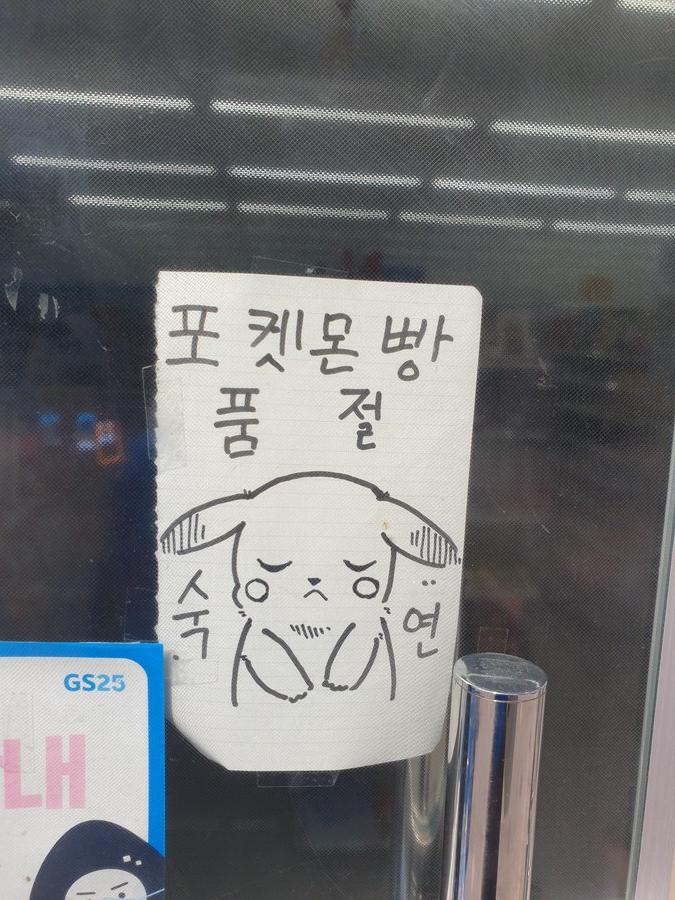 포켓몬빵
품 절
숙 연
GS25
내